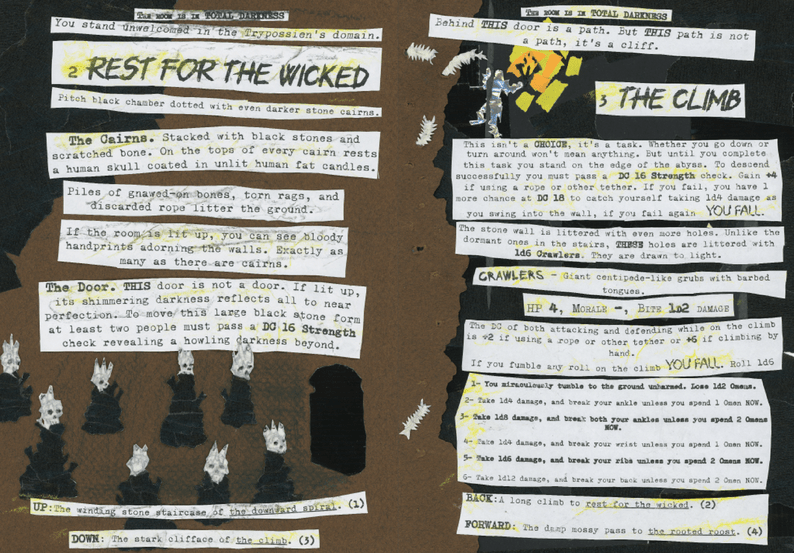 THE ROOM IS IN TOTAL DARKNESS
You stand unwelcomed in the Trypossien's domain.
2 REST FOR THE WICKED
Pitch black chamber dotted with even darker stone cairns.
The Cairns. Stacked with black stones and
scratched bone. On the tops of every cairn rests
a human skull coated in unlit human fat candles.
Piles of gnawed-on bones, torn rags, and
discarded rope litter the ground.
If the room is lit up, you can see bloody
handprints adorning the walls. Exactly as
many as there are cairns.
The Door. THIS door is not a door. If lit up,
its shimmering darkness reflects all to near
perfection. To move this large black stone form
at least two people must pass a DC 16 Strength
check revealing a howling darkness beyond.
UP: The winding stone staircase of the downward spiral. (1)
DOWN: The stark clifface of the climb. (3)
THE ROOM IS IN TOTAL DARKNESS
Behind THIS door is a path. But THIS path is not
a path, it's a cliff.
3 THE CLIMB
This isn't a CHOICE, it's a task. Whether you go down or
turn around won't mean anything. But until you complete
this task you stand on the edge of the abyss. To descend
successfully you must pass a DC 16 Strength check. Gain +4
if using a rope or other tether. If you fail, you have 1
more chance at DC 18 to catch yourself taking 1d4 damage as
you swing into the wall, if you fail again YOU FALL.
The stone wall is littered with even more holes. Unlike the
dormant ones in the stairs, THESE holes are littered with
1d6 Crawlers. They are drawn to light.
CRAWLERS - Giant centipede-like grubs with barbed
tongues.
HP 4, MORALE -, BITE 1D2 DAMAGE
The DC of both attacking and defending while on the climb
is +2 if using a rope or other tether or +6 if climbing by
hand.
If you fumble any roll on the climb YOU FALL. Roll 1d6
1- You miraculously tumble to the ground unharmed. Lose 1d2 Omens.
2- Take 1d4 damage, and break your ankle unless you spend 1 Omen NOW.
3- Take 1d8 damage, and break both your ankles unless you spend 2 Omens
NOW.
4- Take 1d4 damage, and break your wrist unless you spend 1 Omen NOW.
5- Take 1d6 damage, and break your ribs unless you spend 2 Omen NOW.
6- Take 1d12 damage, and break your back unless you spend 2 Omen NOW.
BACK: A long climb to rest for the wicked. (2)
FORWARD: The damp mossy pass to the rooted roost. (4)